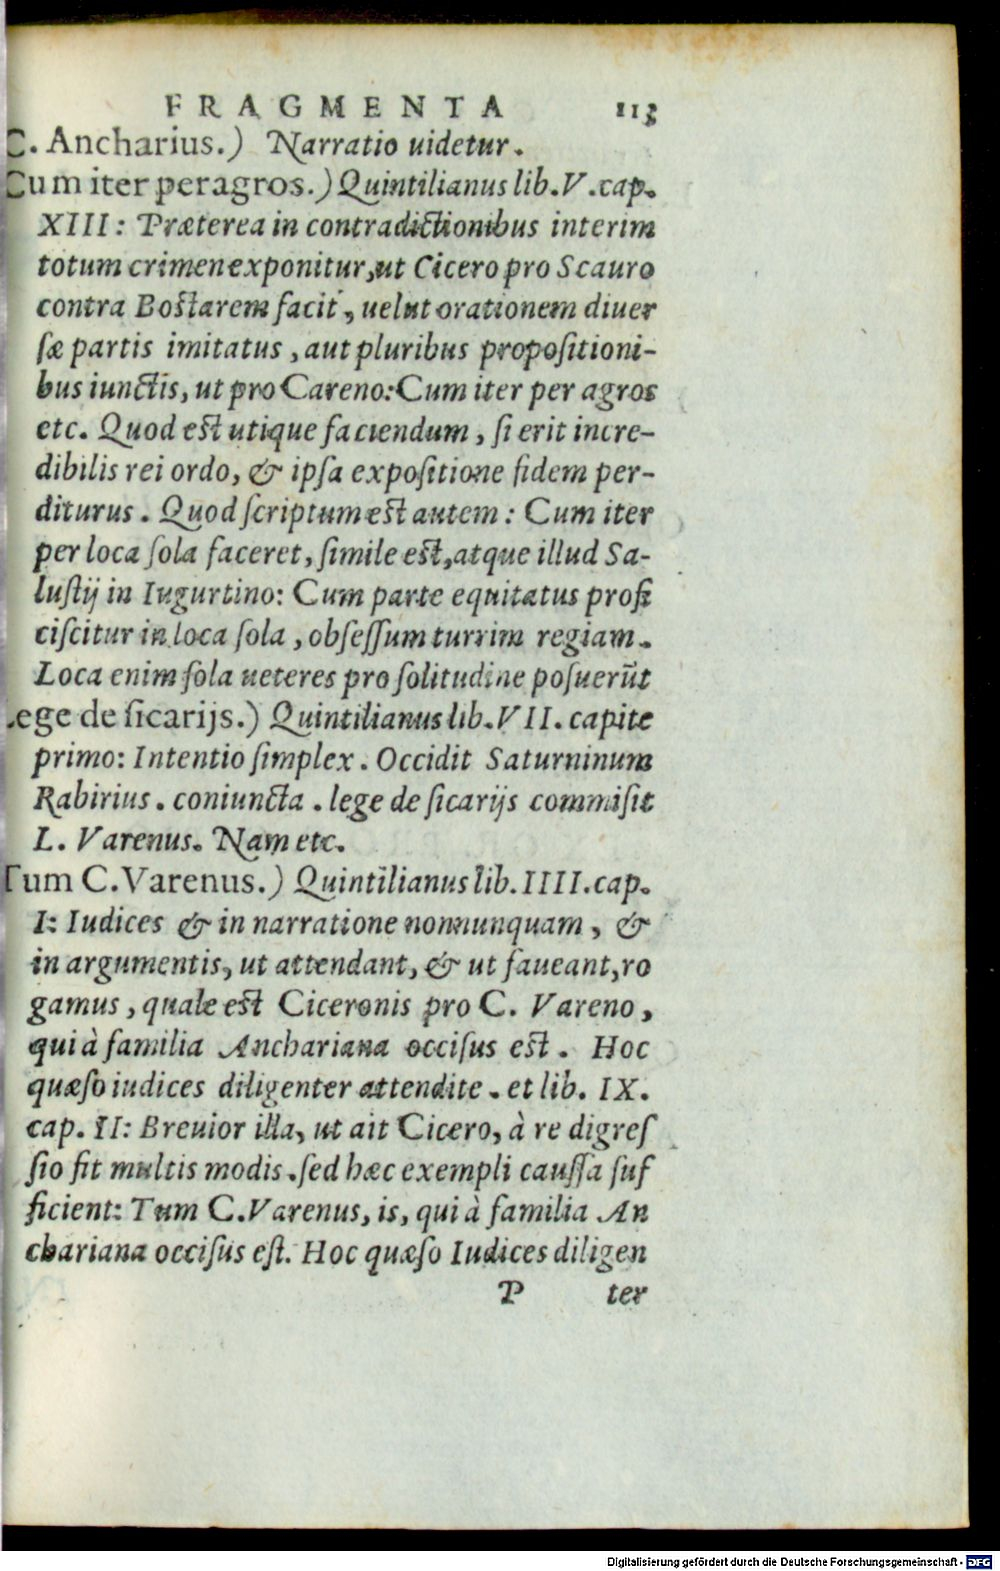 FRAGMENTA 113
C. Ancharius.) Narratio uidetur.
Cum iter per agros.) Quintilianus lib. V. cap.
XIII: Præterea in contradictionibus interim
totum crimen exponitur, ut Cicero pro Scauro
contra Bostarem facit, uelut orationem diuer
sæ partis imitatus, aut pluribus propositioni-
bus iunctis, ut pro Careno: Cum iter per agros
etc. Quod est utique faciendum, si erit incre-
dibilis rei ordo, & ipsa expositione fidem per-
diturus. Quod scriptum est autem: Cum iter
per loca sola faceret, simile est, atque illud Sa-
lustij in Iugurtino: Cum parte equitatus profi
ciscitur in loca sola, obsessum turrim regiam.
Loca enim sola ueteres pro solitudine posuerũt
Lege de sicarijs.) Quintilianus lib. VII. capite
primo: Intentio simplex. Occidit Saturninum
Rabirius. coniuncta. lege de sicarijs commisit
L. Varenus. Nam etc.
Tum C. Varenus.) Quintilianus lib. IIII. cap.
I: Iudices & in narratione nonnunquam, &
in argumentis, ut attendant, & ut faueant, ro
gamus, quale est Ciceronis pro C. Vareno,
qui à familia Anchariana occisus est. Hoc
quæso iudices diligenter attendite. et lib. IX.
cap. II: Breuior illa, ut ait Cicero, à re digres
sio fit multis modis. sed hæc exempli caussa suf
ficient: Tum C. Varenus, is, qui à familia An
chariana occisus est. Hoc quæso Iudices diligen
P ter
Digitalisierung gefördert durch die Deutsche Forschungsgemeinschaft - DFG